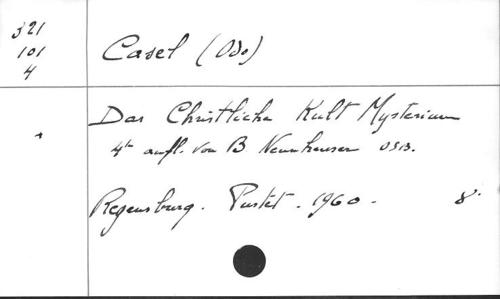 321
101
4
Casel (Odo)
Das Christliche Kult Mysterium
4te aufl. von B Neunheuser OSB.
Regensburg. Pustet. 1960. 8°